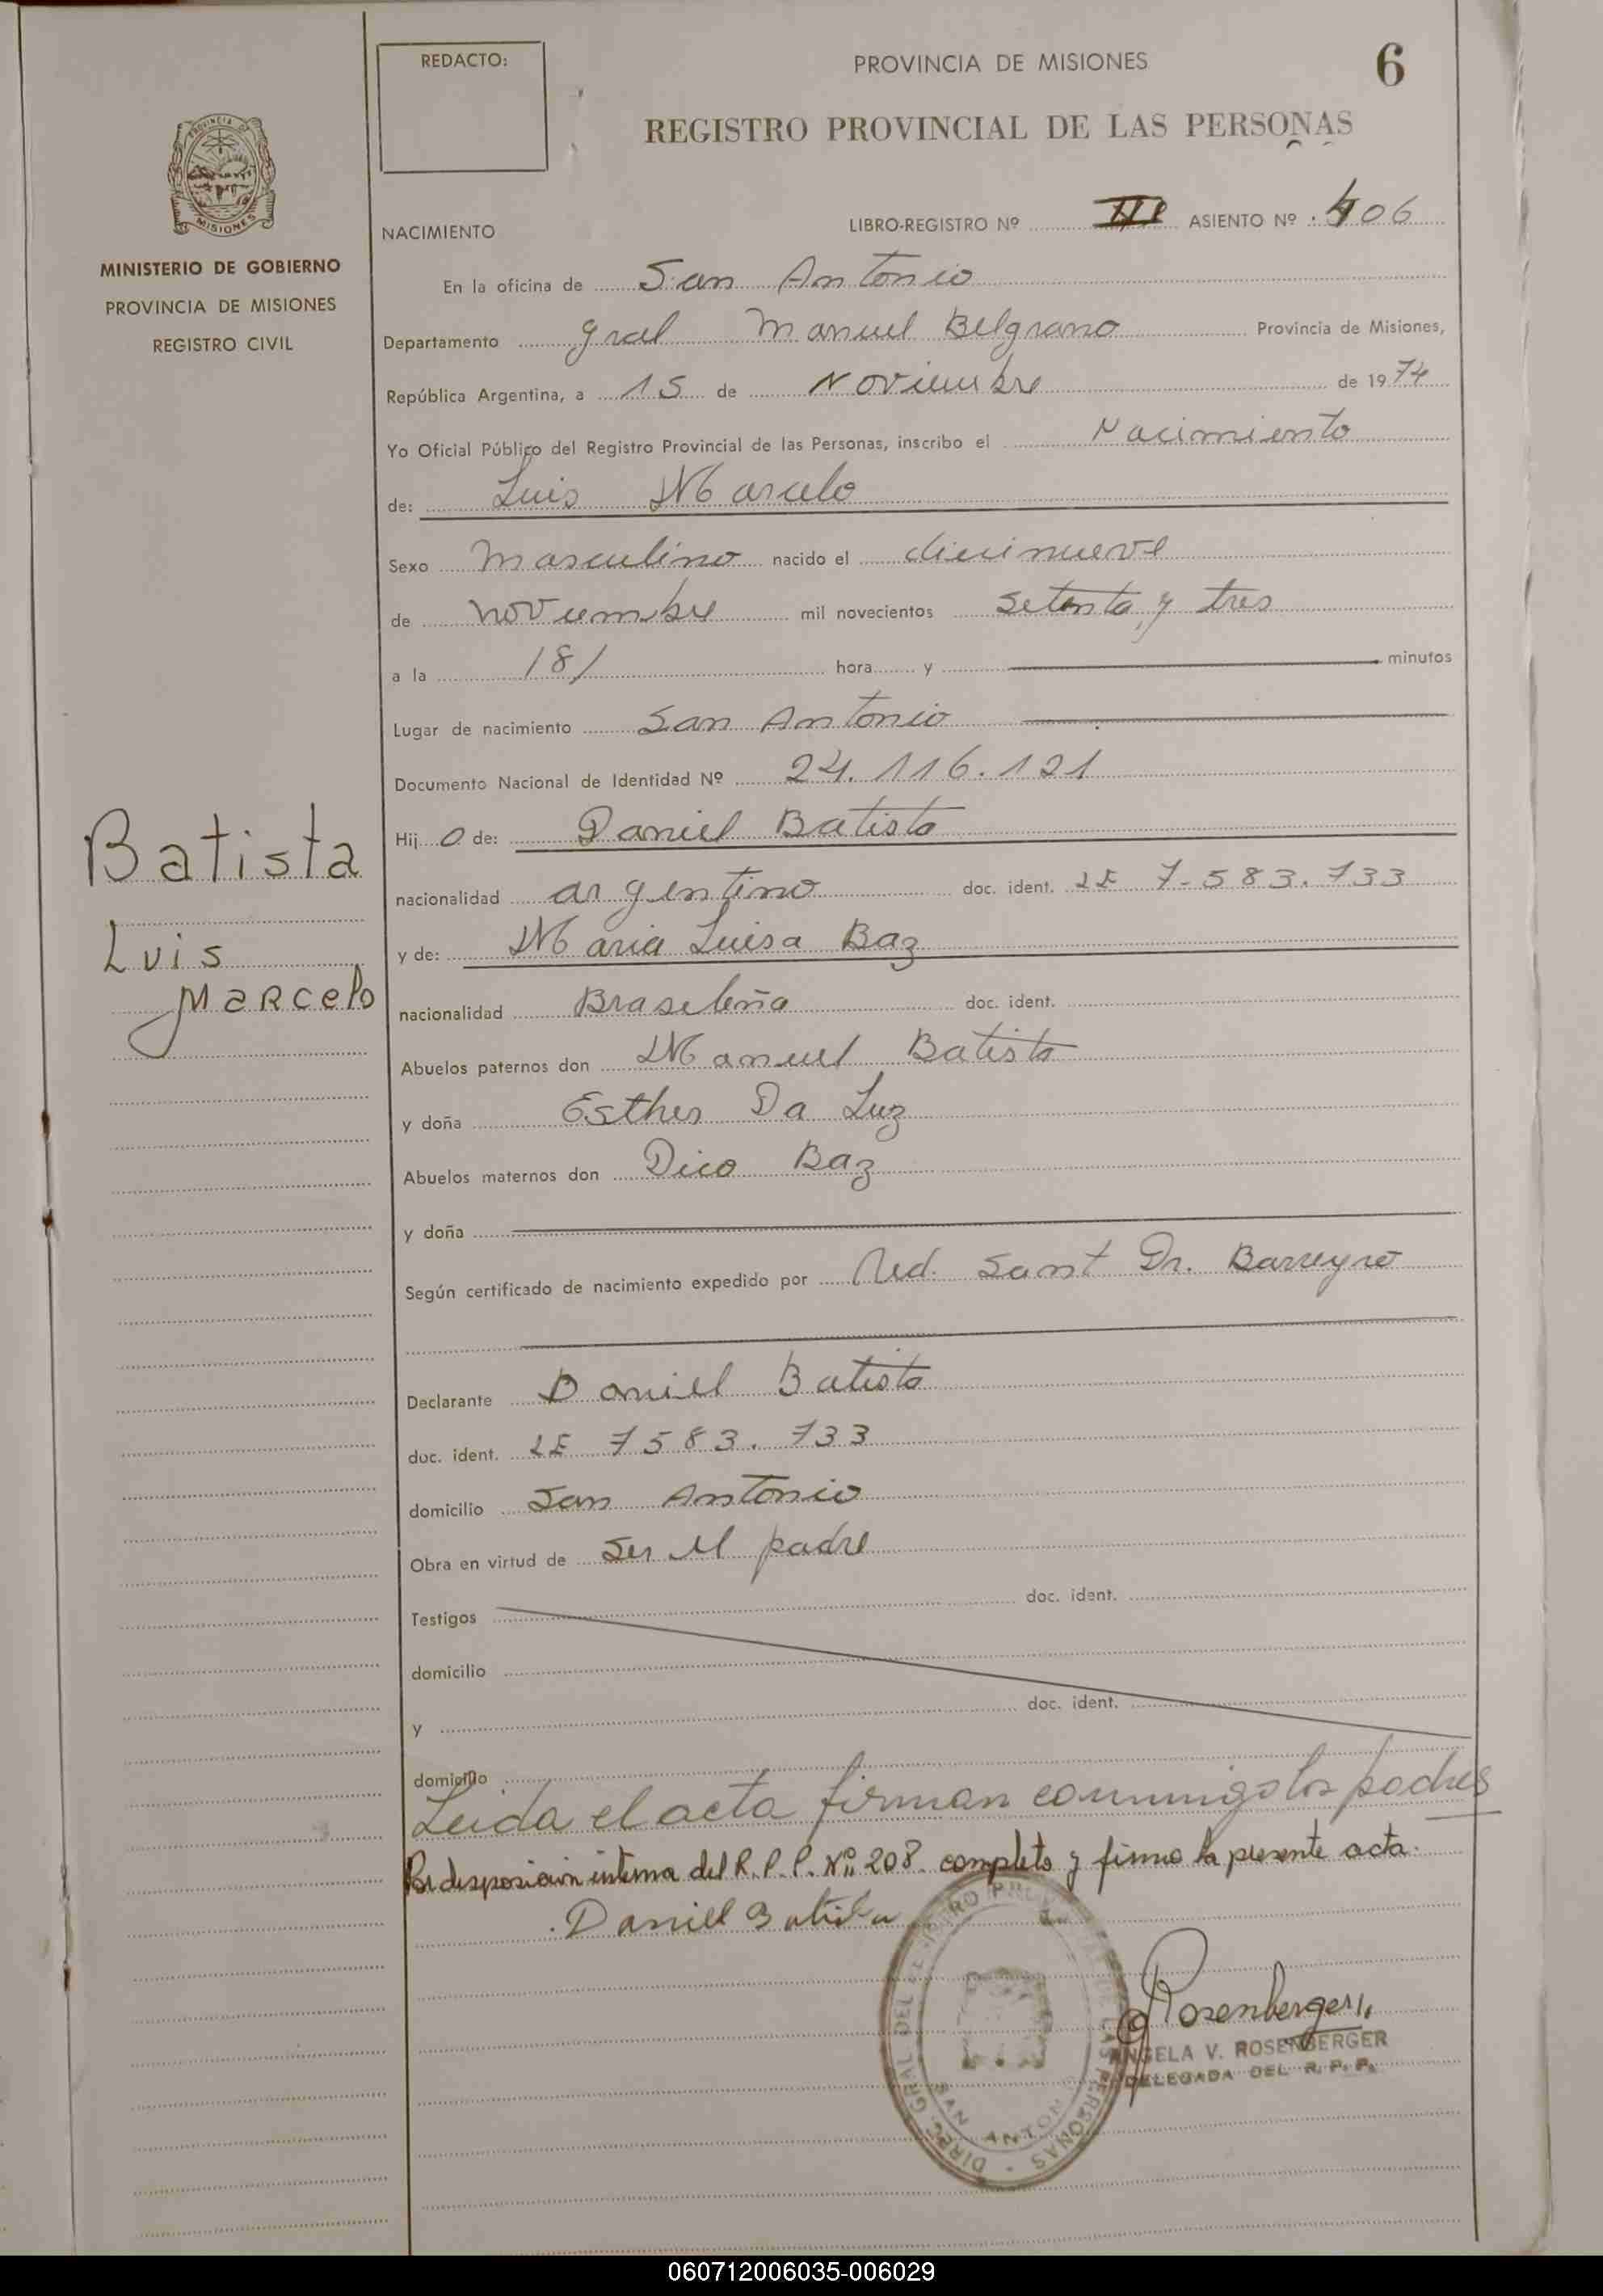 REDACTO:
PROVINCIA DE MISIONES
6
REGISTRO PROVINCIAL DE LAS PERSONAS
MISIONES
MINISTERIO DE GOBIERNO
PROVINCIA DE MISIONES
REGISTRO CIVIL
NACIMIENTO LIBRO-REGISTRO Nº III ASIENTO Nº 406
En la oficina de San Antonio
Departamento Gral Manuel Belgrano Provincia de Misiones,
República Argentina, a 15 de Noviembre de 1974
Yo Oficial Público del Registro Provincial de las Personas, inscribo el Nacimiento
de: Luis Marcelo
Sexo Masculino nacido el diecinueve
de noviembre mil novecientos setenta y tres
a la 18/ hora y minutos
Lugar de nacimiento San Antonio
Documento Nacional de Identidad Nº 24.116.121
Hij o de: Daniel Batista
nacionalidad argentino doc. ident. LE 7-583.733
y de: Maria Luisa Baz
nacionalidad Brasileña doc. ident.
Abuelos paternos don Manuel Batista
y doña Esther Da Luz
Abuelos maternos don Dico Baz
y doña
Según certificado de nacimiento expedido por Red. Sant Dr. Barreyro
Declarante Daniel Batista
doc. ident. LE 7583.733
domicilio San Antonio
Obra en virtud de Ser el padre
Testigos doc. ident.
domicilio
y doc. ident.
domicilio
Leida el acta firman conmigo los padres
Por disposición interna del R.P.P. Nº 208. completo y firmo la presente acta.
Daniel Batista
Batista
Luis
Marcelo
DIREC. GRAL DEL REGISTRO PROVINCIAL DE LAS PERSONAS
SAN ANTONIO
Rosenberger
ANGELA V. ROSENBERGER
DELEGADA DEL R. P. P.
060712006035-006029